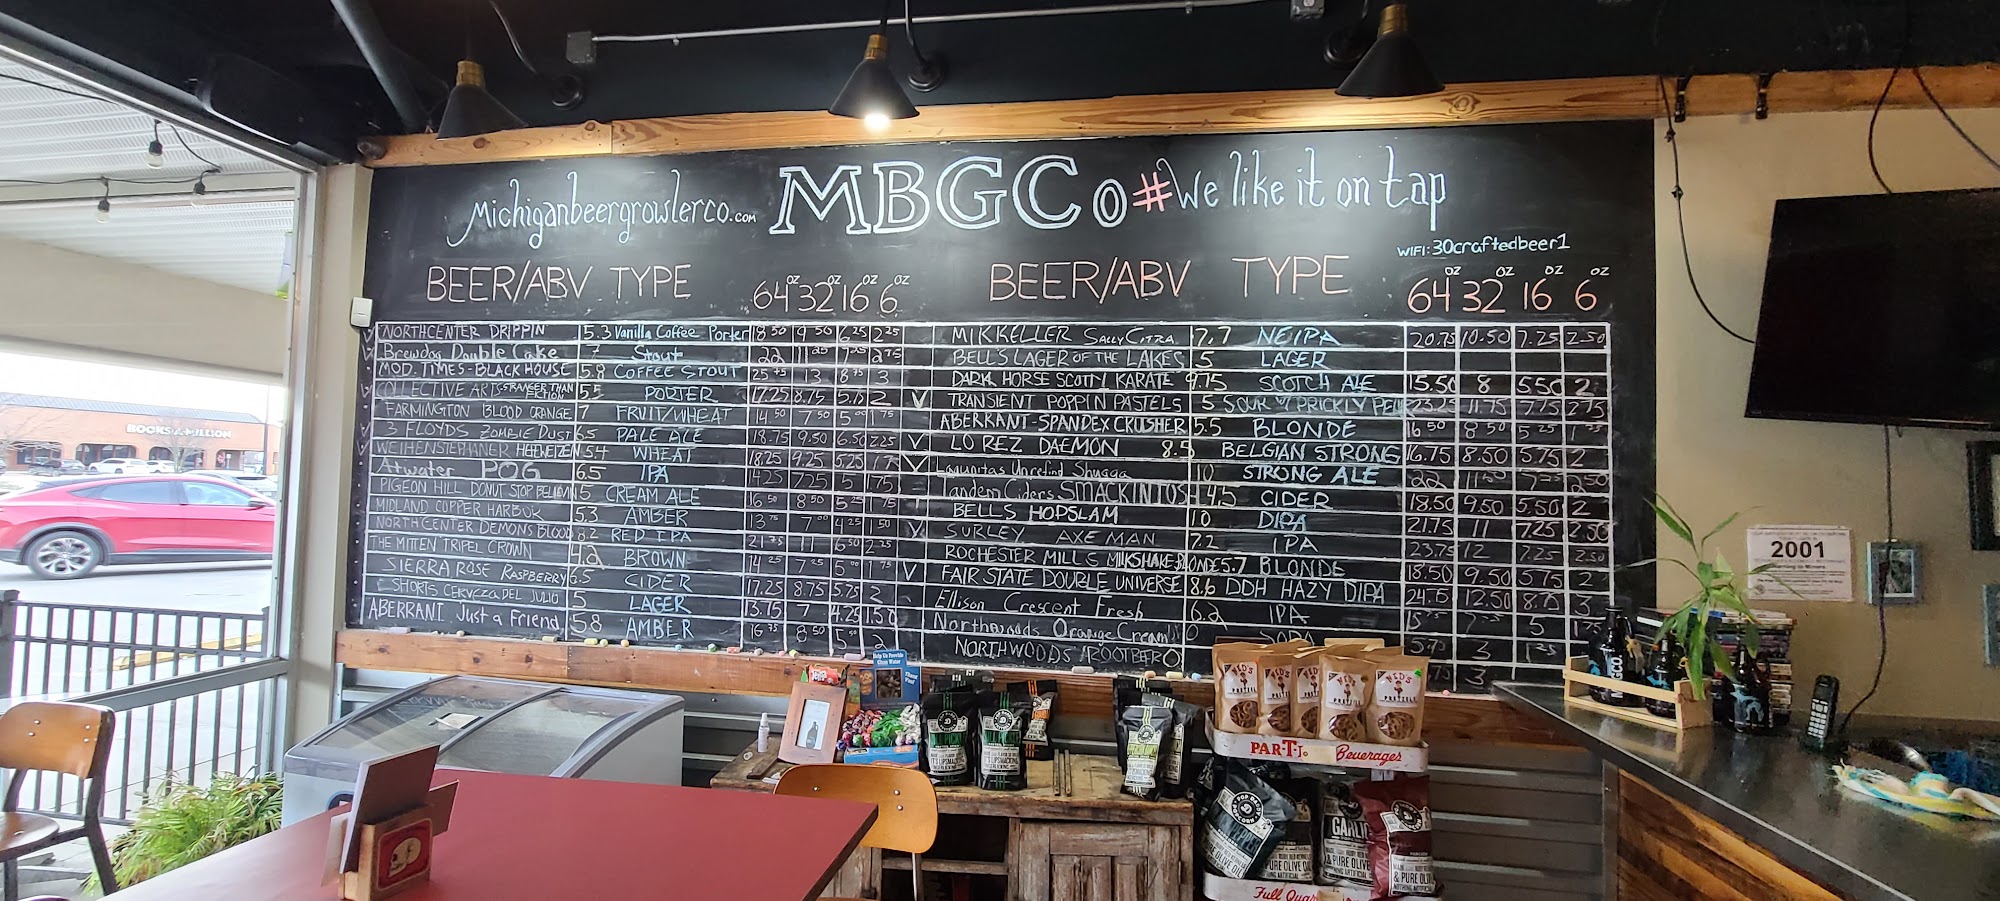 Michiganbeergrowlerco.com MBGCo #We like it on tap
WIFI:30craftedbeer1
BEER/ABV TYPE 64oz 32oz 16oz 6oz
NORTHCENTER DRIPPIN 5.3 Vanilla Coffee Porter 18.50 9.50 6.25 2.25
Brewdog Double Cake 7 Stout 22 11.25 2.75
MOD. TIMES-BLACK HOUSE 5.8 COFFEE STOUT 25.75 13 8.75 3
COLLECTIVE ARTS-STRANGER THAN FICTION 5.5 PORTER 17.25 8.75 5.75 2
FARMINGTON BLOOD ORANGE 7 FRUIT/WHEAT 14.50 7.50 5.00 1.75
3 FLOYDS ZOMBIE DUST 6.5 PALE ALE 18.75 9.50 6.50 2.25
WEIHENSTEPHANER HEFEWEIZEN 5.4 WHEAT 18.25 9.25 5.25
Atwater POG 6.5 IPA 14.25 7.25 5 1.75
PIGEON HILL DONUT STOP 5 CREAM ALE 16.50 8.50 5.25 1.75
MIDLAND COPPER HARBOR 5.3 AMBER 13.75 7.00 4.25 1.50
NORTHCENTER DEMONS BLOOD 8.2 RED IPA 21.75 11 6.50 2.25
THE MITTEN TRIPEL CROWN 4.2 BROWN 14.25 7.25 5.00 1.75
SIERRA ROSE RASPBERRY 6.5 CIDER 17.25 8.75 5.75 2
SHORTS CERVEZA DEL JULIO 5 LAGER 13.75 7 4.25 1.50
ABERRANT Just a Friend 5.8 AMBER 16.75 8.50 5.50 2
BEER/ABV TYPE 64oz 32oz 16oz 6oz
MIKKELLER SALLY CITRA 7.7 NEIPA 20.75 10.50 7.25 2.50
BELL'S LAGER OF THE LAKES 5 LAGER
DARK HORSE SCOTTY KARATE 9.75 SCOTCH ALE 15.50 8 5.50 2
TRANSIENT POPPIN PASTELS 5 SOUR W/ PRICKLY PEAR 23.25 11.75 7.75 2.75
ABERRANT-SPANDEX CRUSHER 5.5 BLONDE 16.50 8.50 5.25 1.75
LO REZ DAEMON 8.5 BELGIAN STRONG 16.75 8.50 5.75 2
Lagunitas Unrefind Shugga 10 STRONG ALE 22 11.50 7.25 2.50
Tandem Ciders SMACKINTOSH 4.5 CIDER 18.50 9.50 5.50 2
BELLS HOPSLAM 10 DIPA 21.75 11 7.25 2.50
SURLEY AXE MAN 7.2 IPA 23.75 12 7.25 2.50
ROCHESTER MILLS MILKSHAKE BLONDE 5.7 BLONDE 18.50 9.50 5.75 2
FAIR STATE DOUBLE UNIVERSE 8.6 DDH HAZY DIPA 12.50 8.75 3
Ellison Crescent Fresh 6.2 IPA 5 1.75
Northwoods Orange Cream 0 SODA 3
NORTHWOODS ROOTBEER 3
BOOKS-A-MILLION
2001
Help Us Provide
Clean Water
NED'S
PRETZEL
NED'S
PRETZEL
PAR-T-J. Beverages
GARLIC
& PURE OLIVE
& PURE OLIVE
MBGCO.